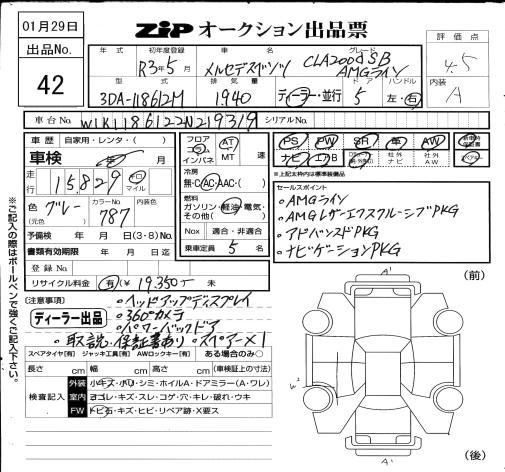 01月29日
出品No.
42
ZIP オークション出品票
年式 初年度登録 車名 グレード
R3年5月 メルセデスベンツ CLA200d SB AMGライン
型式 排気量 ドア ハンドル
3DA-118612M 1940 ディーラー・並行 5 左・右
評価点
4.5
内装
A
車台No. W1K1186122N219319 シリアルNo.
車歴 自家用・レンタ・( )
車検 年 月
走行 15,829 キロ マイル
色 グレー (元色) カラーNo. 787 内装色
予備検 年 月 日(3・8)No.
書類有効期限 年 月 日迄
登録No.
リサイクル料金 有(¥ 19,350-)
フロア インパネ AT・MT 速
冷房 無・C・AC・AAC・( )
燃料 ガソリン・軽油・電気・その他( )
Nox 適合・非適合
乗車定員 5 名
PS PW SR 革 AW 新車時保証書
ナビ エアB 社外ナビ 社外AW
※上記太枠内は標準装備品
セールスポイント
・AMGライン
・AMGレザーエクスクルーシブPKG
・アドバンスドPKG
・ナビゲーションPKG
(注意事項)
・ヘッドアップディスプレイ
ディーラー出品 ・360°カメラ
・パワーバックドア
・取説・保証書あり ・スペアキー×1
スペアタイヤ(有) ジャッキ工具(有) AWロックキー(有) ある場合のみ○
長さ cm 幅 cm 高さ cm (車検証上の寸法)
検査記入
外装 小キズ・小U・シミ・ホイルA・ドアミラー(A・ワレ)
室内 ヨゴレ・キズ・スレ・コゲ・穴・キレ・破れ・ウキ
FW トビ石・キズ・ヒビ・リペア跡・X要ス
※ご記入の際はボールペンで強くご記入下さい。
(前)
A1
W2
A1
(後)